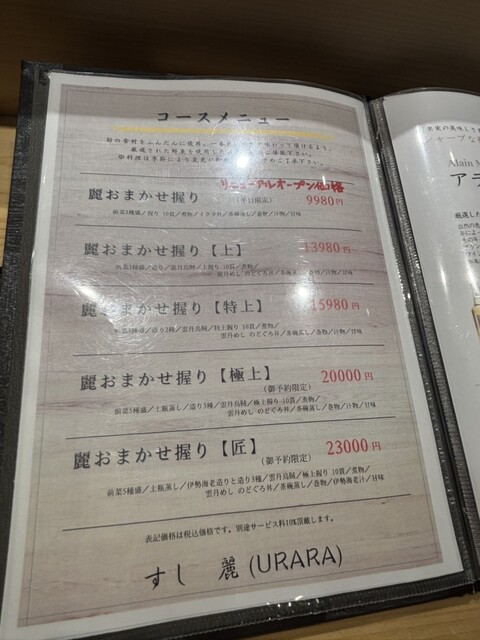 コースメニュー
旬の食材をふんだんに使用、一
厳選された鮮魚を使用した
※料理は季節により変更
めご了承下さい。
リニューアルオープン価格
麗おまかせ握り
(平日限定)
9980円
前菜3種盛／握り 10貫／煮物／イクラ丼／茶碗蒸し／巻物／汁物／甘味
麗おまかせ握り【上】
13980円
前菜3種盛／造り／雲丹烏賊／上握り 10貫／煮物／
雲丹めし のどぐろ丼／茶碗蒸し／巻物／汁物／甘味
麗おまかせ握り【特上】
15980円
前菜3種盛／造り2種／雲丹烏賊／特上握り 10貫／煮物／
雲丹めし のどぐろ丼／茶碗蒸し／巻物／汁物／甘味
麗おまかせ握り【極上】
20000円
(御予約限定)
前菜5種盛／土瓶蒸し／造り3種／雲丹烏賊／極上握り 10貫／煮物／
雲丹めし のどぐろ丼／茶碗蒸し／巻物／汁物／甘味
麗おまかせ握り【匠】
23000円
(御予約限定)
前菜5種盛／土瓶蒸し／伊勢海老造りと造り3種／雲丹烏賊／極上握り 10貫／煮物／
雲丹めし のどぐろ丼／茶碗蒸し／巻物／伊勢海老汁／甘味
表記価格は税込価格です。別途サービス料10%頂戴します。
すし 麗 (URARA)
果実の美味しさ
シャープな
Alain
アラ
厳選した
自然の恵